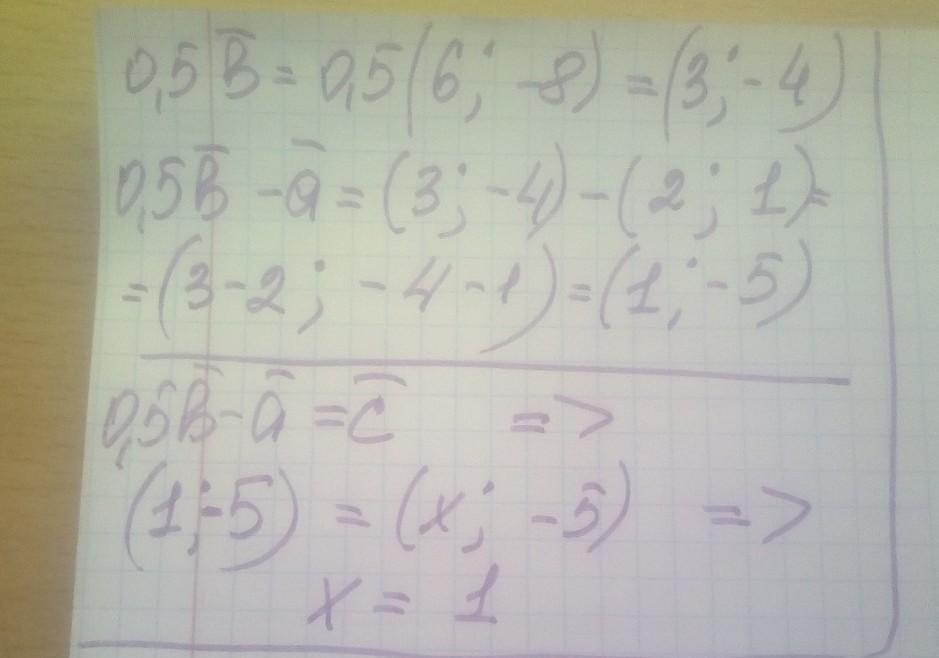 0,5 B̅ = 0,5 (6; -8) = (3; -4)
0,5B̅ - a̅ = (3; -4) - (2; 1) =
= (3 - 2; -4 - 1) = (1; -5)
0,5B̅ - a̅ = c̅ =>
(1; -5) = (x; -5) =>
x = 1